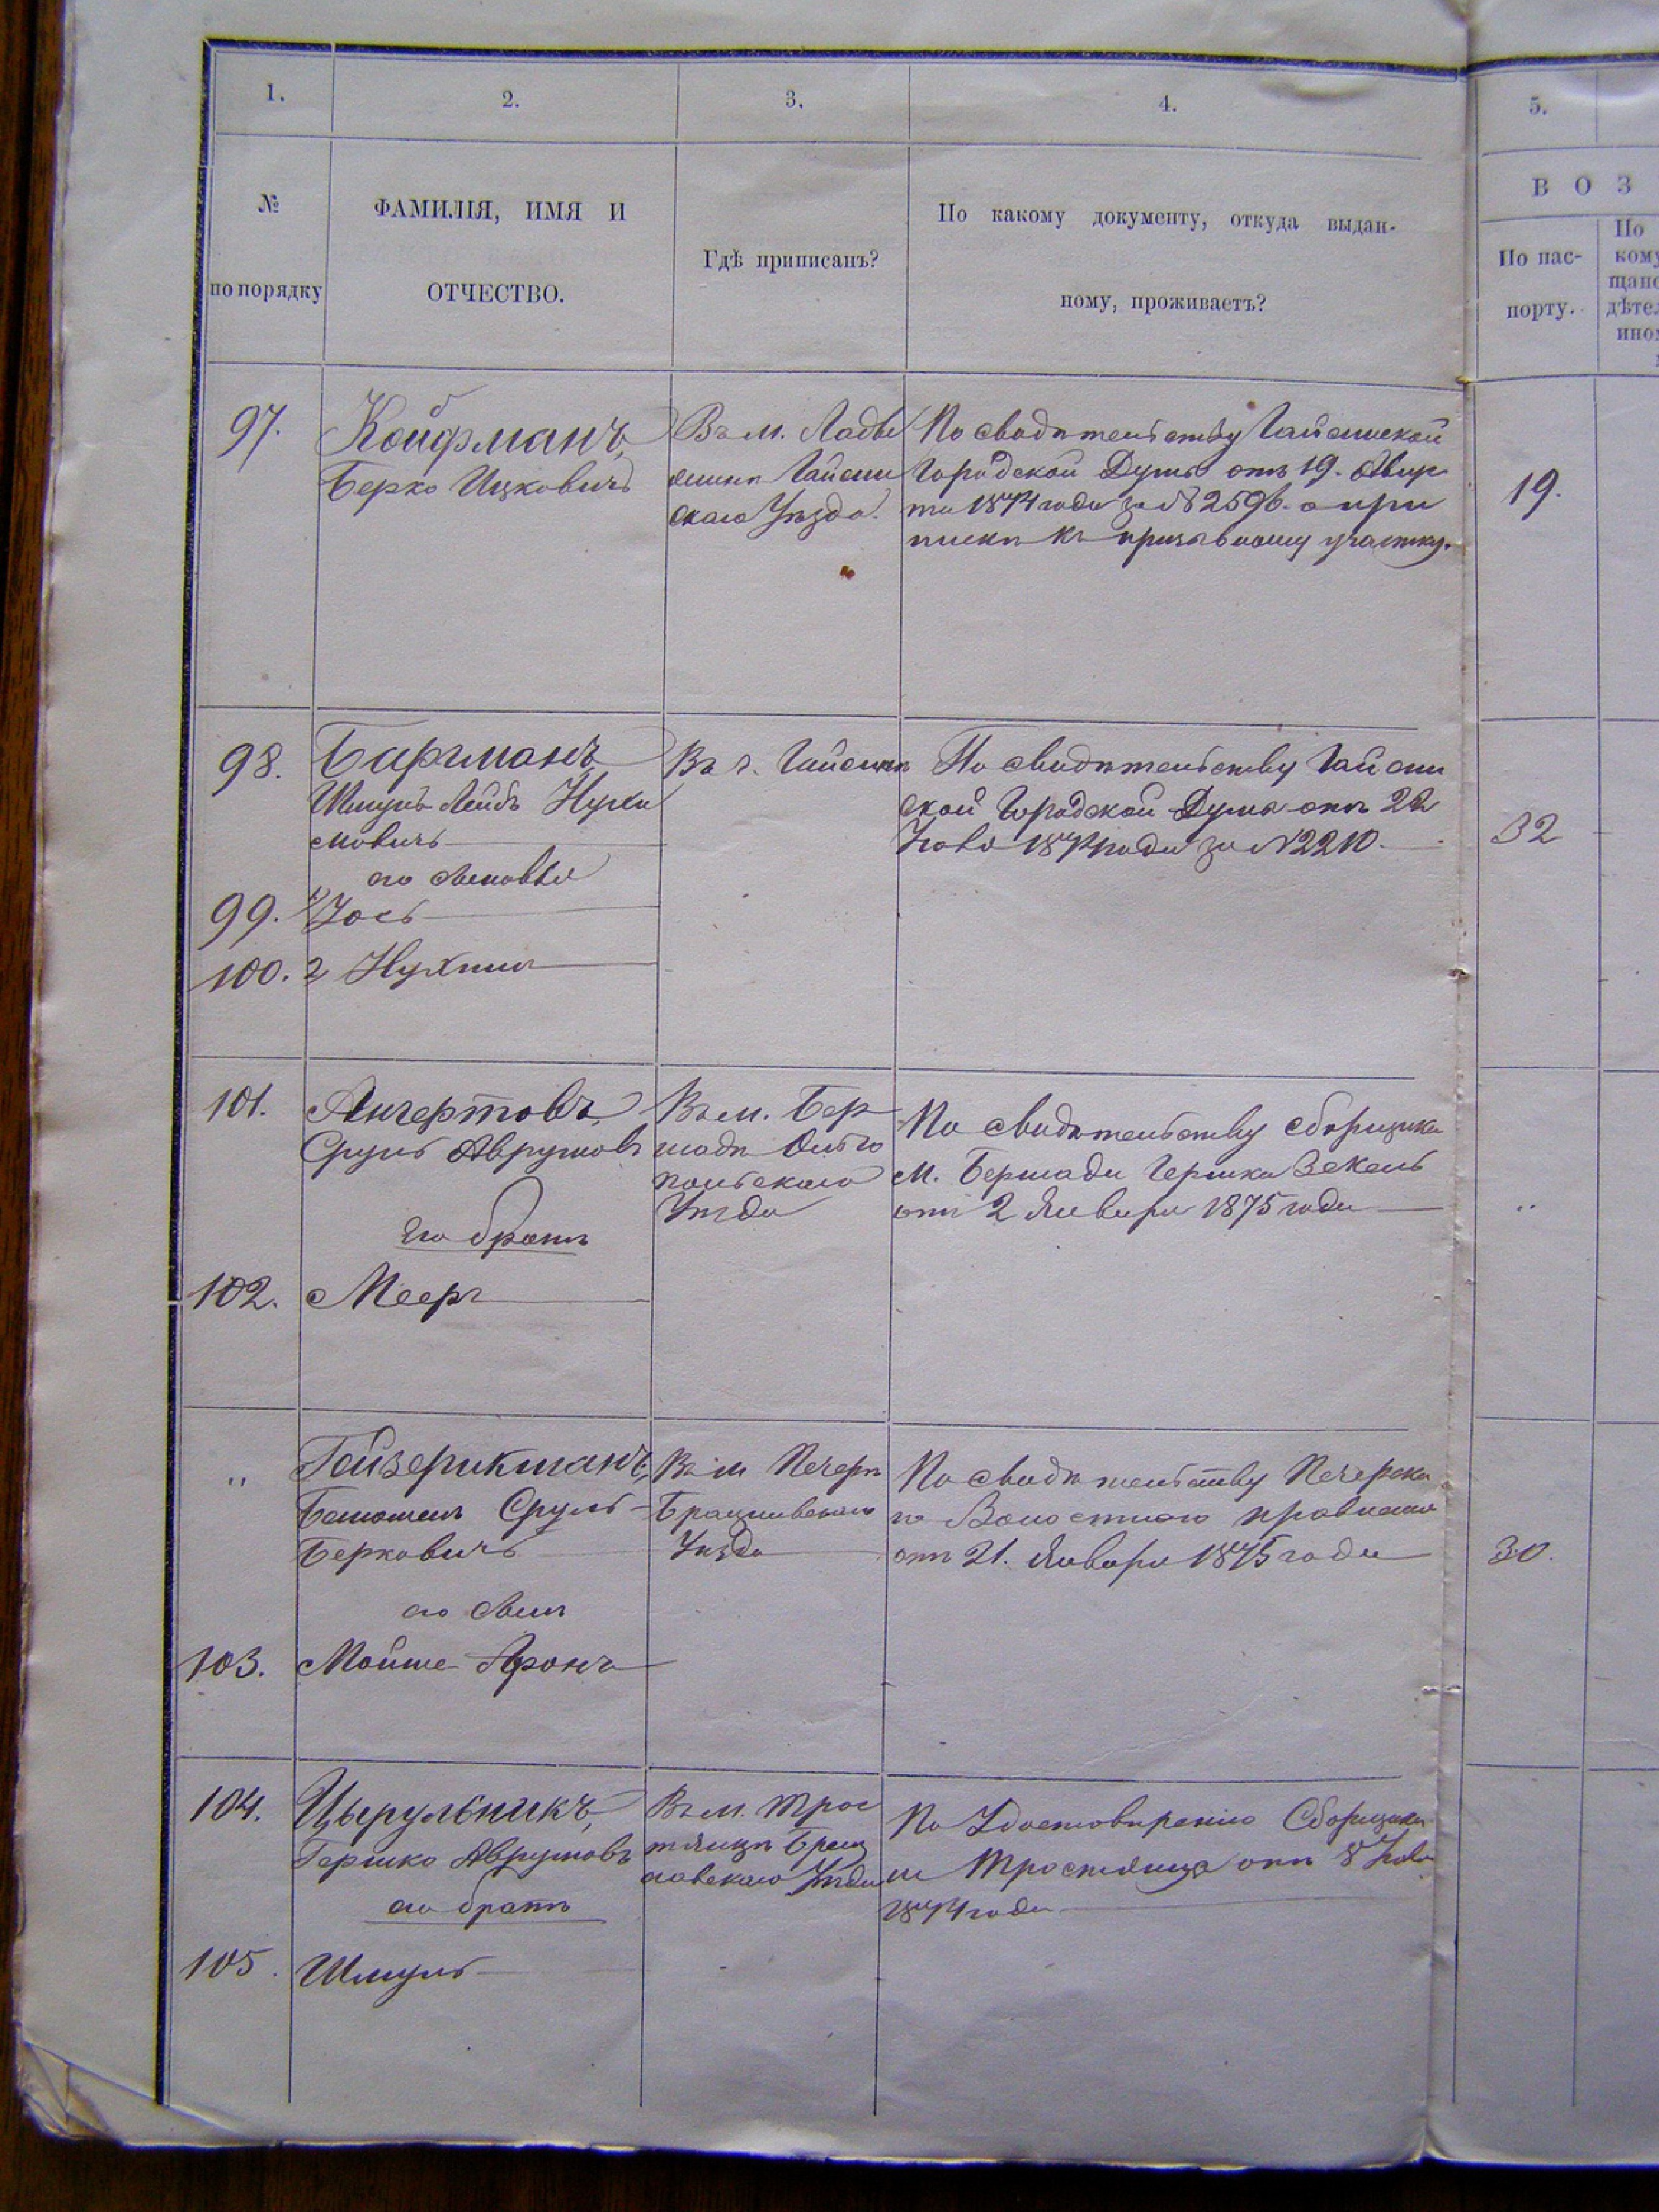 1.
2.
3.
4.
5.
№
по порядку
ФАМИЛІЯ, ИМЯ И
ОТЧЕСТВО.
Гдѣ приписанъ?
По какому документу, откуда выдан-
ному, проживаетъ?
В О З
По пас-
порту.
По
кому
щанс
дѣтел
ино
97.
Койфманъ,
Берко Ицковичъ
Въ м. Лады
жинѣ Гайсин
скаго Уѣзда.
По свидѣтельству Гайсинской
Городской Думы отъ 19. Авгус
та 1874 года за № 2596. о при
пискѣ къ призывному участку.
19.
98.
Бергманъ
Шмуль Лейбъ Нухи
мовичъ
его сыновья
99. 1 Іось
100. 2 Нухимъ
Въ г. Гайсинѣ
По свидѣтельству Гайсин
ской Городской Думы отъ 22
1874 года за № 2210.
32
101.
Сруль Аврумовъ
Его братъ
102. Мееръ
Въ м. Бер
шади Ольго
польскаго
Уѣзда
По свидѣтельству сборщика
М. Бершади Гершка
отъ 2 Января 1875 года
"
"
Гойзерикманъ,
Сруль
Берковичъ
его сынъ
103. Мойше Аронъ
Въ м Печерѣ
Брацлавскаго
Уѣзда
По свидѣтельству Печерска
го Волостного правленія
отъ 21. Января 1875 года
30.
104.
Цырульникъ,
Гершко Аврумовъ
его братъ
105. Шмуль
Въ м. Трос
тянцѣ Брац
лавскаго Уѣзда
По Удостовѣренію Сборщика
м Тростянца отъ 8
1874 года